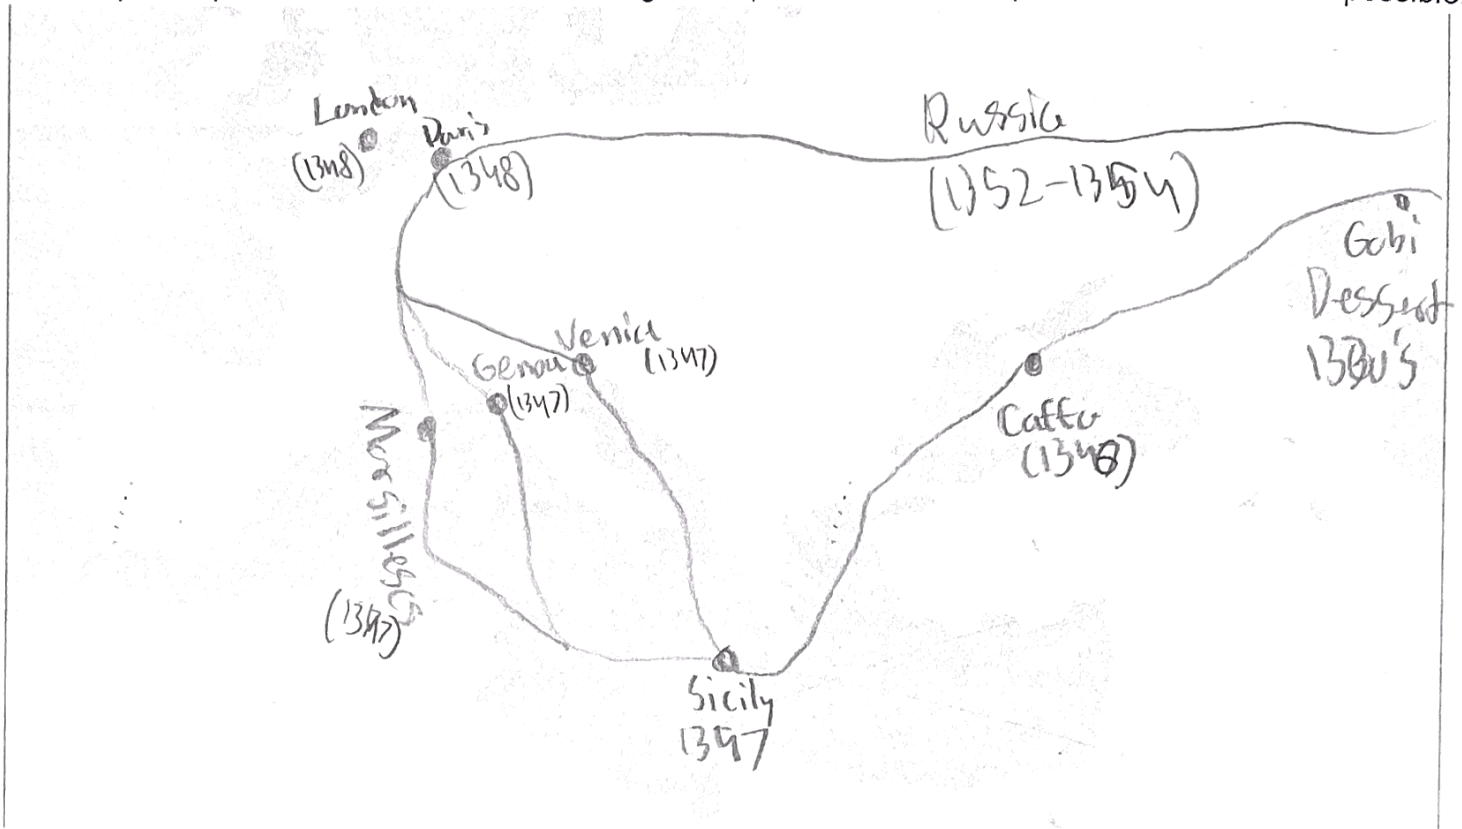 possible
London
(1348)
Paris
(1348)
Russia
(1352-1354)
Gobi
Dessert
1300's
Venice
(1347)
Genoa
(1347)
Caffa
(1346)
Marsilles
(1347)
Sicily
1347